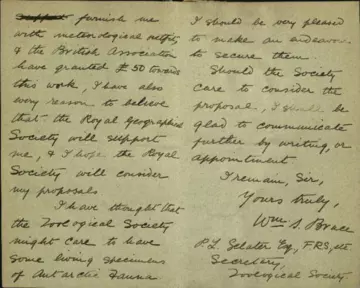 furnish me
with meteorological outfit,
& the British Association
have granted £50 towards
this work, I have also
every reason to believe
that the Royal Geographical
Society will support
me, & I hope the Royal
Society will consider
my proposals.
I have thought that
the Zoological Society
might care to have
some living specimens
of Antarctic Fauna
I should be very pleased
to make an endeavour
to secure them.
Should the Society
care to consider the
proposal, I should be
glad to communicate
further by writing, or
appointment
I remain, Sir,
Yours truly,
Wm S. Bruce
P.L. Sclater Esq, F.R.S, etc
Secretary,
Zoological Society